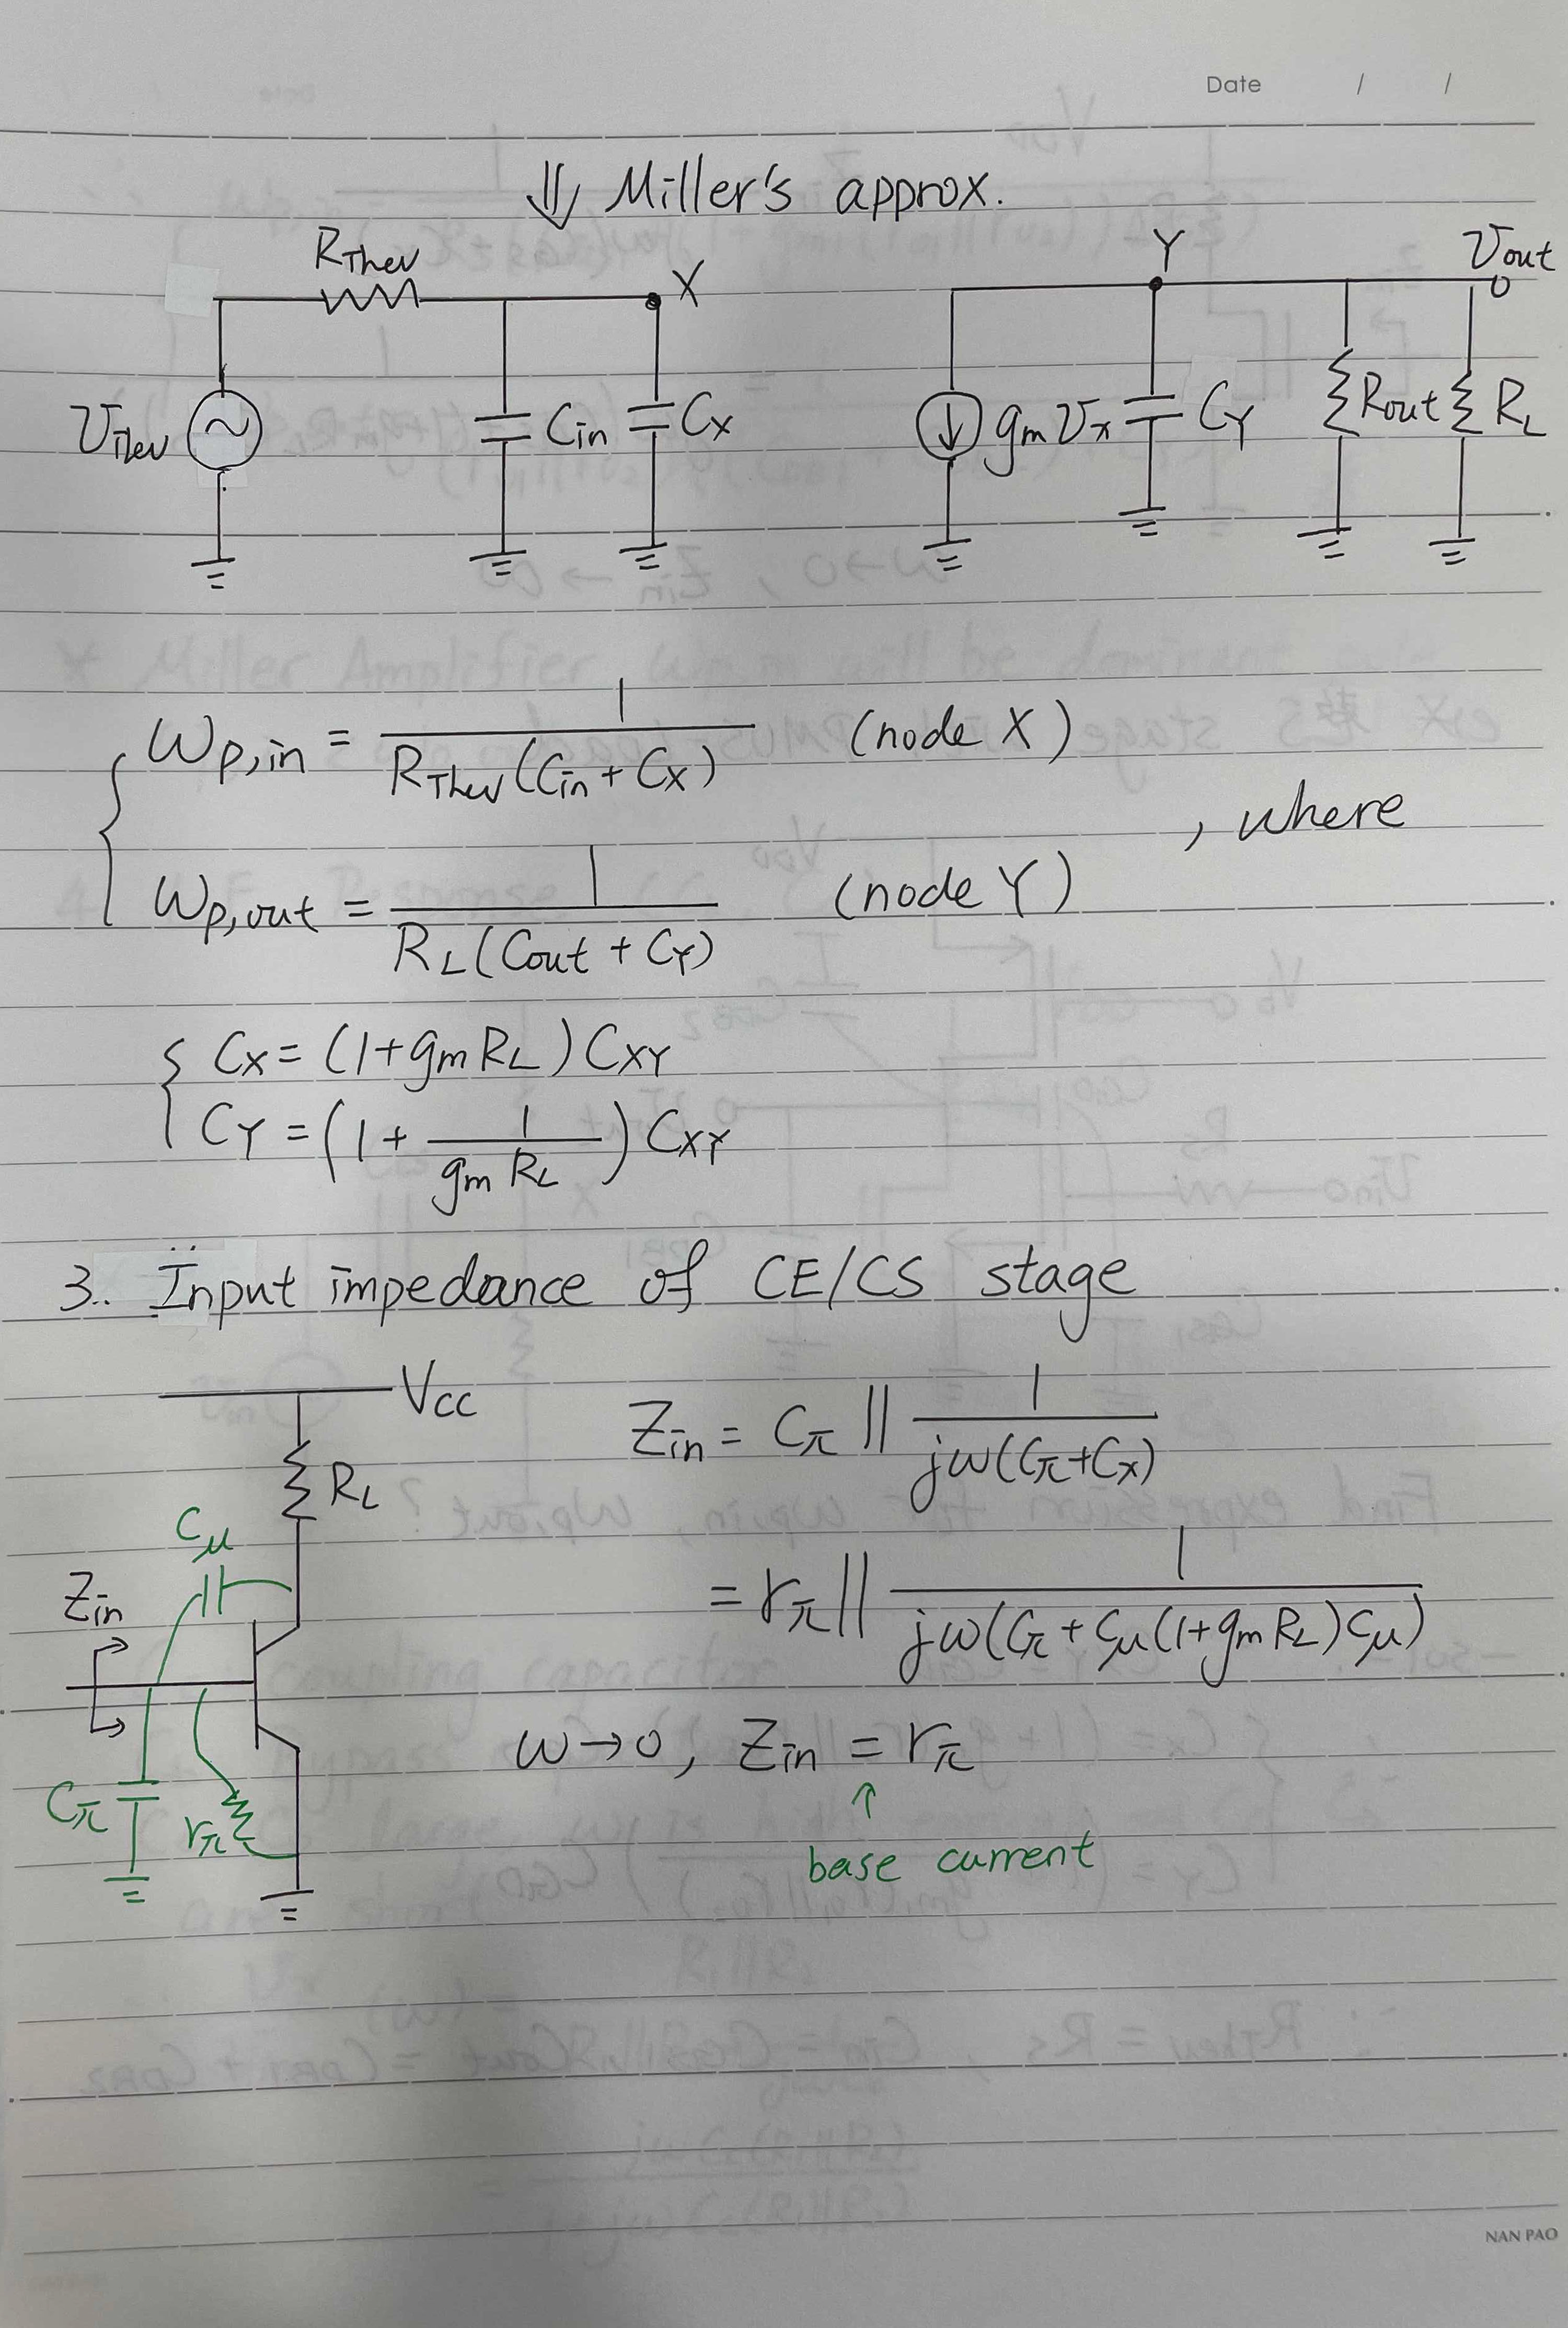 Date / /
⇓ Miller's approx.
R_Thev X Y V_out
V_Thev C_in C_X g_m V_x C_Y R_out R_L
ω_p,in = 1 / R_Thev (C_in + C_X) (node X)
, where
ω_p,out = 1 / R_L (C_out + C_Y) (node Y)
C_X = (1 + g_m R_L) C_XY
C_Y = (1 + 1 / g_m R_L) C_XY
3. Input impedance of CE/CS stage
V_CC
R_L
C_μ
Z_in
C_π r_π
Z_in = C_π || 1 / jω(C_π + C_X)
= r_π || 1 / jω(C_π + C_μ (1 + g_m R_L) C_μ)
ω → 0, Z_in = r_π
↑
base current
NAN PAO